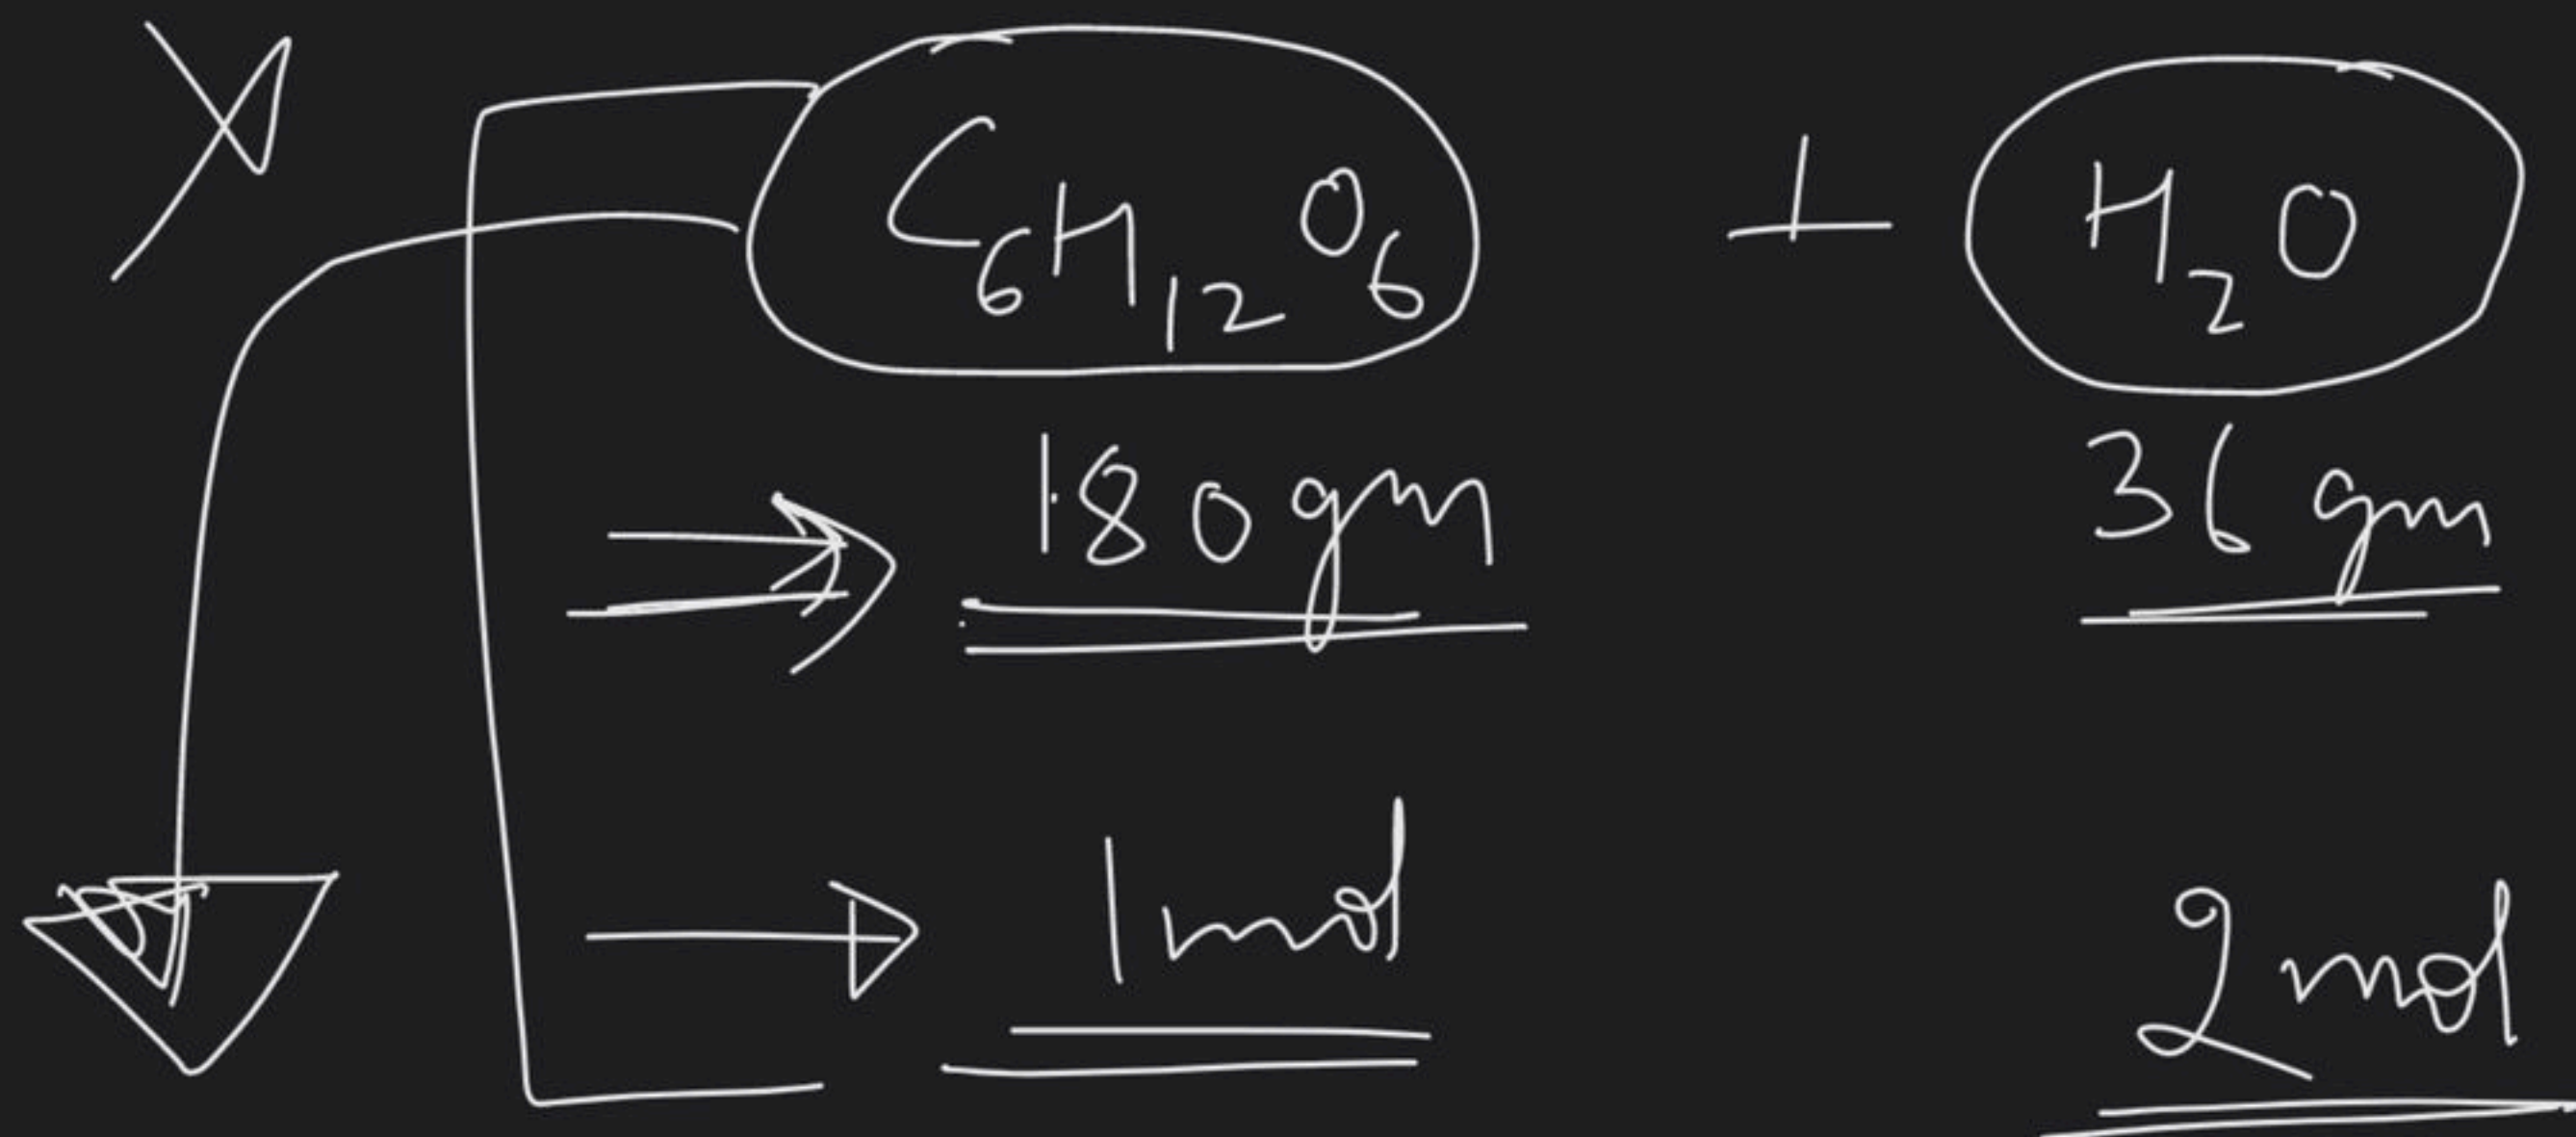 C6H12O6 + H2O
180gm 36 gm
1mol 2mol